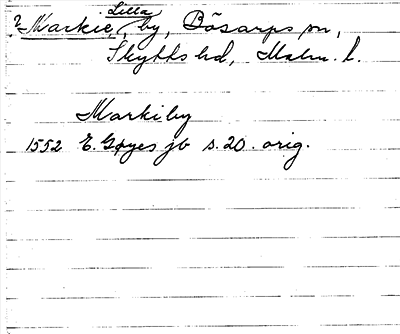 ? Markie, Lilla, by, Bösarps sn,
Skytts hd, Malm. l.
Markiby
1552 E. Gøyes jb s. 20. orig.